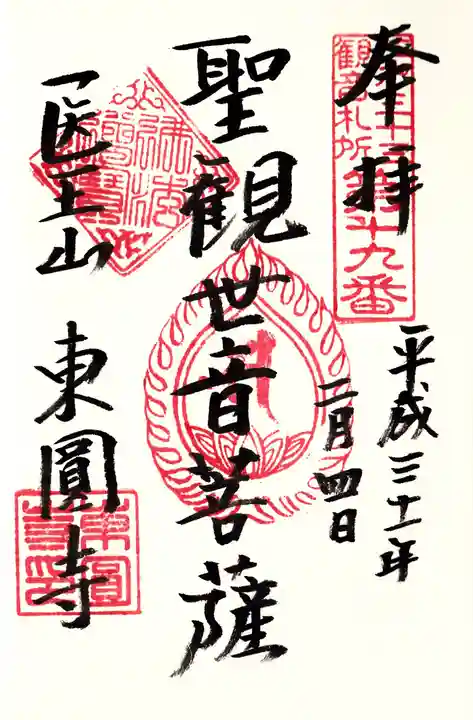 奉拝
平成三十一年
二月四日
聖観世音菩薩
医王山
東圓寺
観音札所
十九番
佛法僧寳
東圓寺印